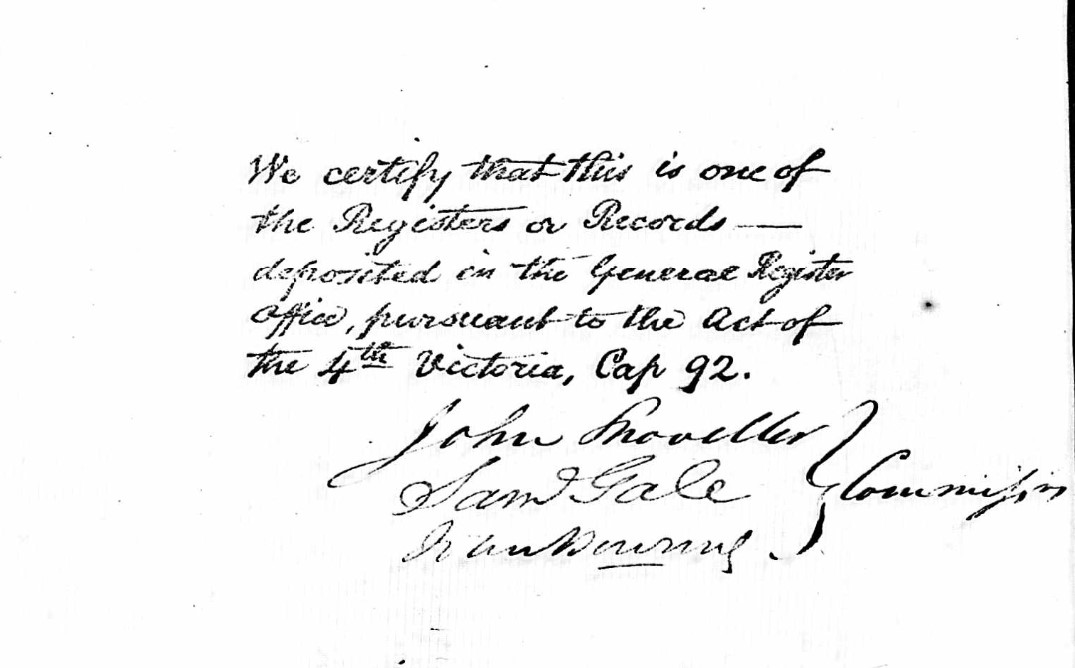 We certify that this is one of
the Registers or Records —
deposited in the General Register
Office, pursuant to the Act of
the 4th Victoria, Cap 92.
John Shoveller
Saml Gale